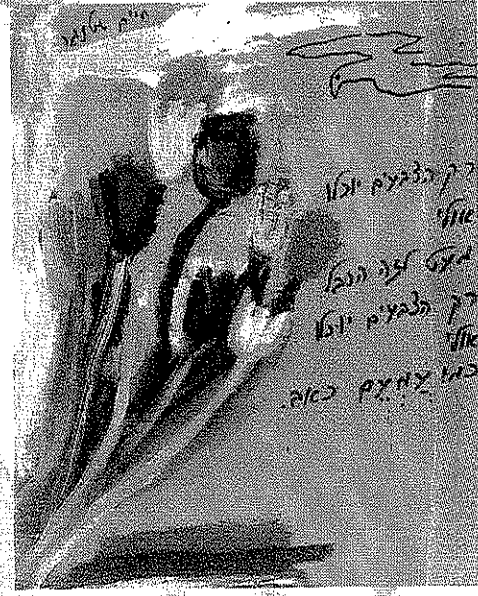 חיים
רק הצבעים יוכלו
אולי
מעט לזה הנבל
רק הצבעים יוכלו
אולי
כמו עִמְעֵם כאב.